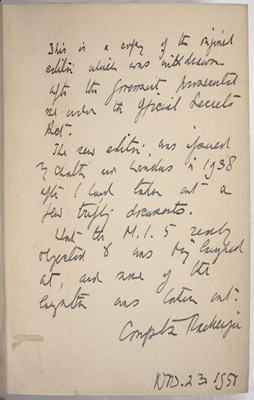 This is a copy of the original
edition which was withdrawn
after the Government prosecuted
me under the Official Secrets
Act.
The new edition was issued
by Chatto and Windus in 1938
after I had taken out a
few trifling documents.
What the M.I.5 really
objected to was being laughed
at, and some of the
laughter was taken out.
Compton Mackenzie
Nov. 23 1951